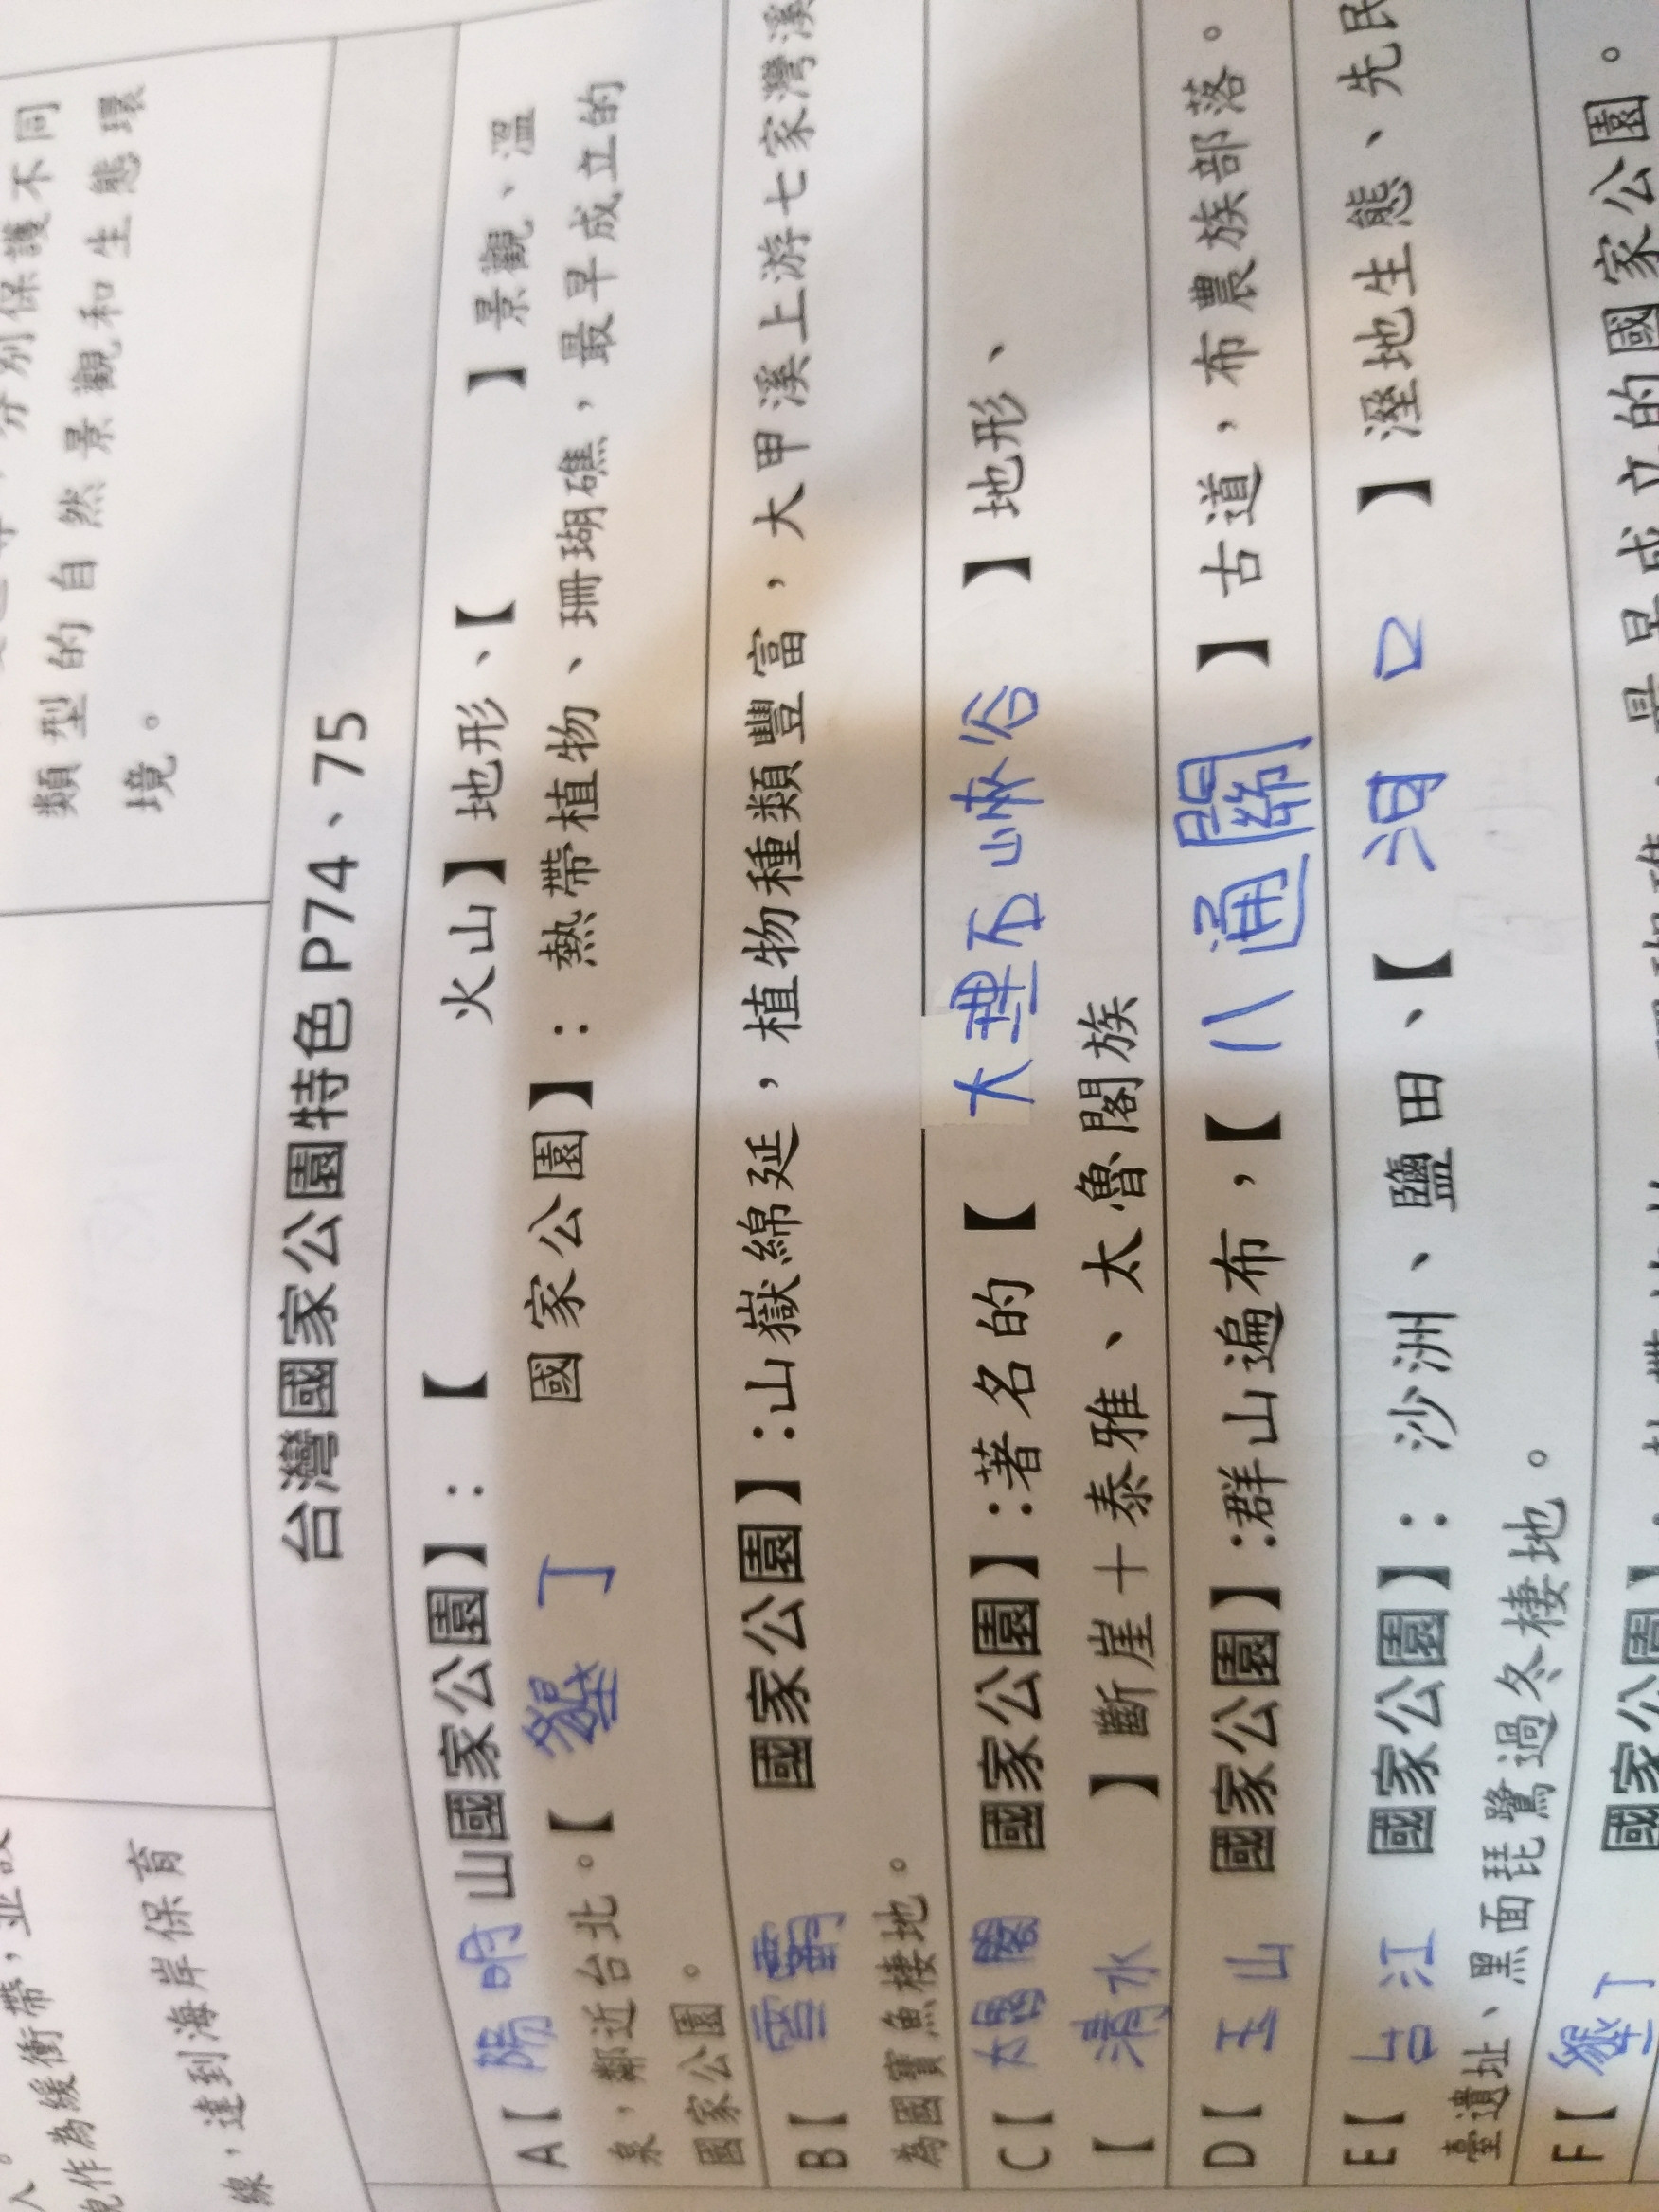 分別保護不同
類型的自然景觀和生態環
境。
作為緩衝帶，並
線，達到海岸保育
台灣國家公園特色 P74、75
A【 陽明山國家公園】：【 火山】地形、【 】景觀、溫
泉，鄰近台北。【 墾丁 國家公園】：熱帶植物、珊瑚礁，最早成立的
國家公園。
B【 雪霸 國家公園】:山嶽綿延，植物種類豐富，大甲溪上游七家灣溪
為國寶魚棲地。
C【 太魯閣 國家公園】:著名的【 大理石峽谷 】地形、
【 清水 】斷崖＋泰雅、太魯閣族
D【 玉山 國家公園】:群山遍布，【 八通關 】古道，布農族部落。
E【 台江 國家公園】：沙洲、鹽田、【 河口 】溼地生態、先民
臺遺址、黑面琵鷺過冬棲地。
F【 墾丁 國家公園】 最早成立的國家公園。